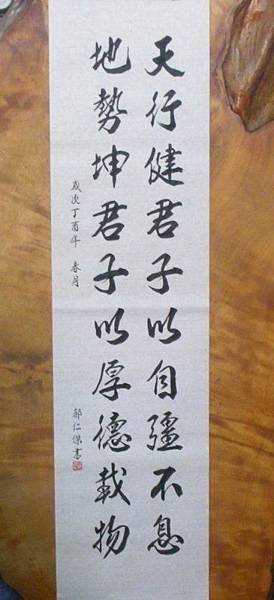 天行健君子以自彊不息
地勢坤君子以厚德載物
歲次丁酉年 春月
郝仁傑書